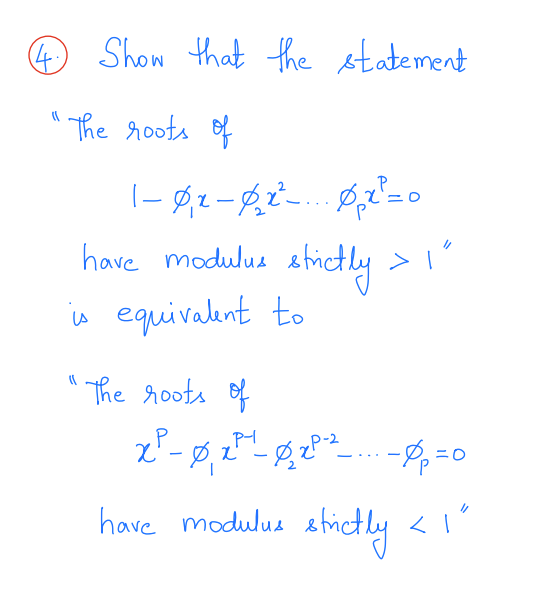 4. Show that the statement
"The roots of
1 - ϕ₁x - ϕ₂x² - ... ϕₚxᵖ = 0
have modulus strictly > 1"
is equivalent to
"The roots of
xᵖ - ϕ₁xᵖ⁻¹ - ϕ₂xᵖ⁻² - ... - ϕₚ = 0
have modulus strictly < 1"